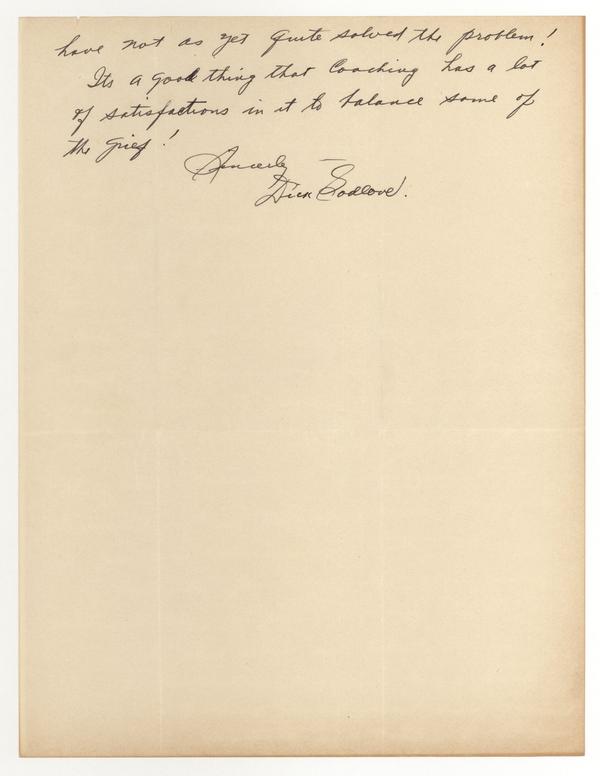 have not as yet quite solved the problem!
Its a good thing that Coaching has a lot
of satisfactions in it to balance some of
the grief!
Sincerely —
Dick Godlove.